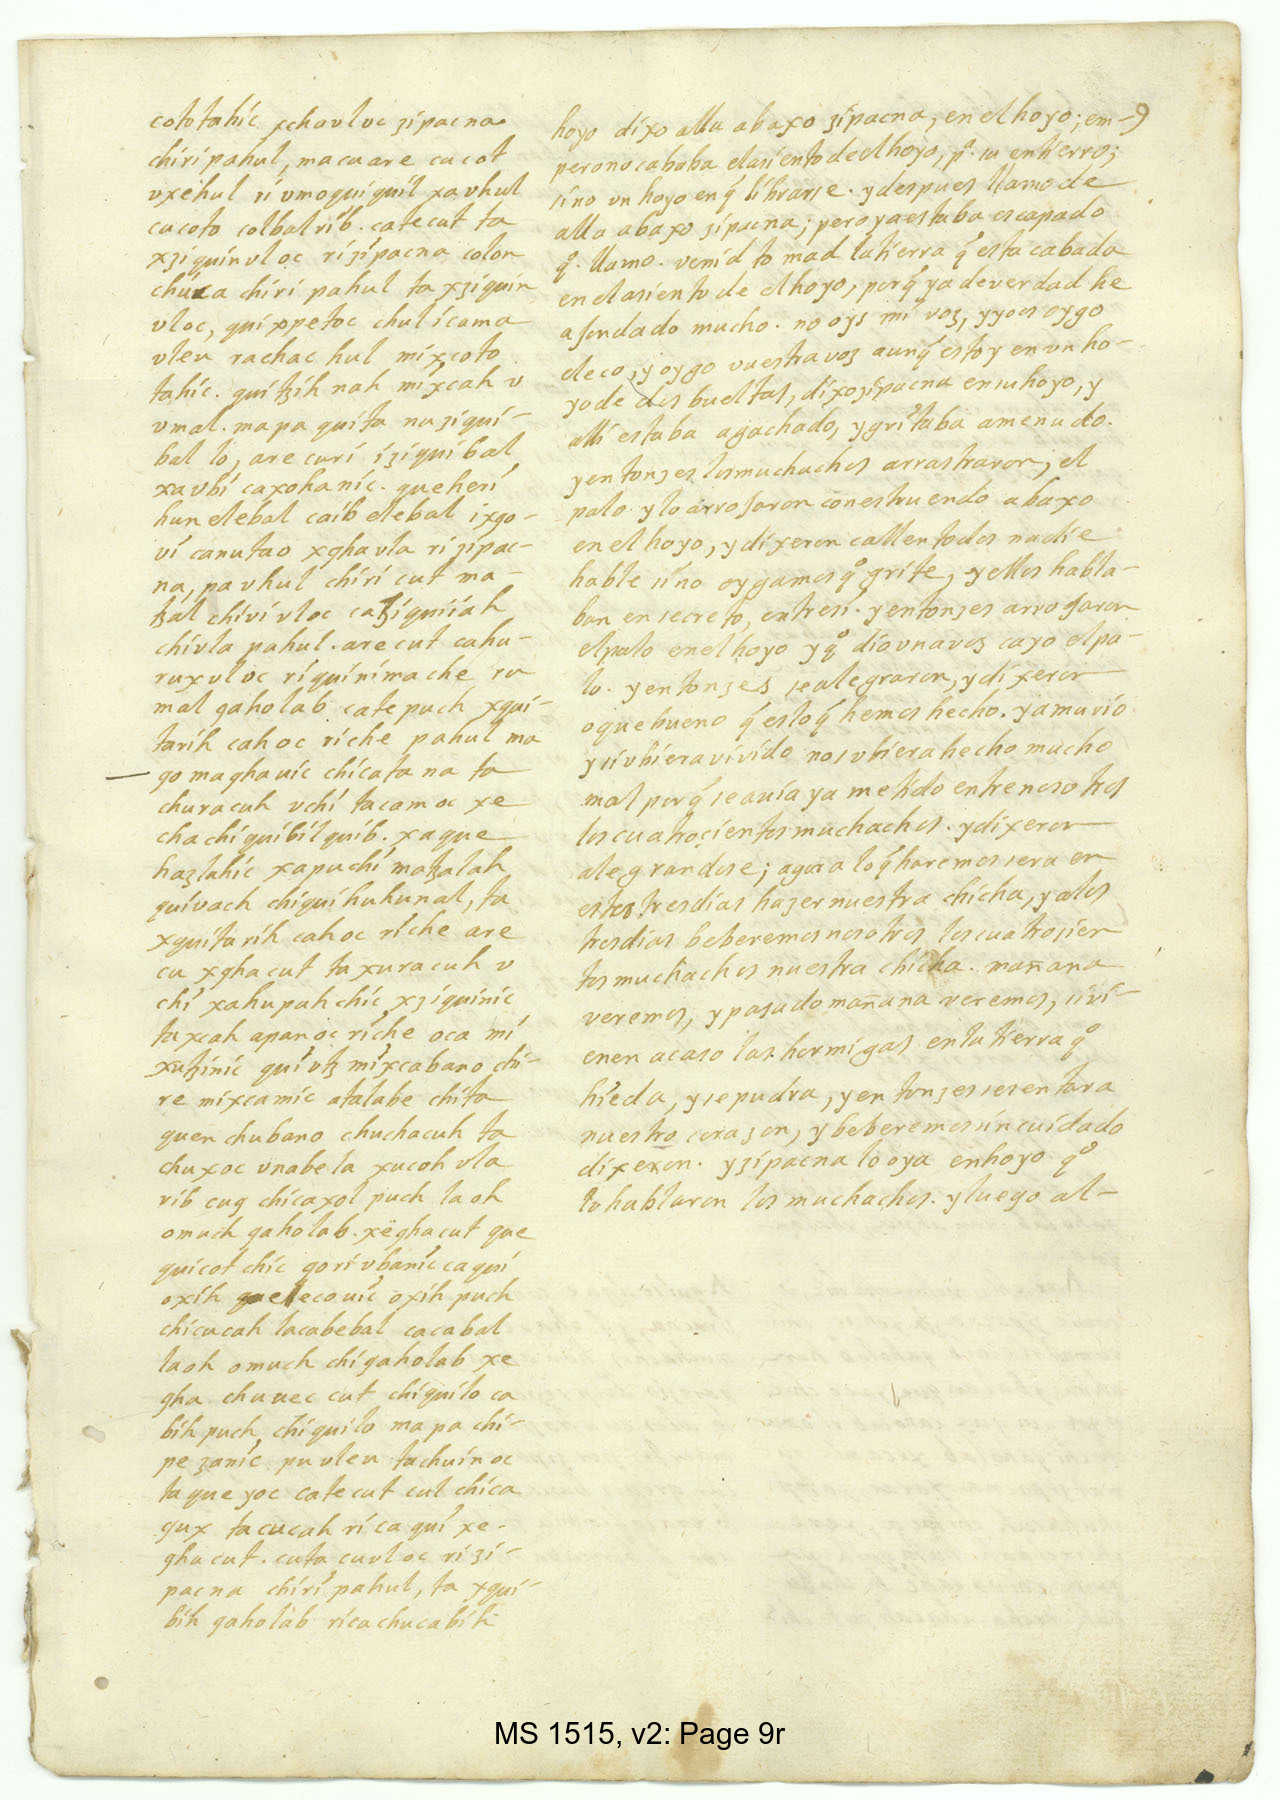 cototahic xchauloc zipacna
chiri pahul, macuare cacot
vxehul ri vmoquiquil xavhul
cacoto colbalrib. catecut ta
xziquinuloc ri zipacna colon
chuca chiri pahul ta xziquin
vloc, quixpetoc chulicama
vleu rachac hul mixcoto
tahic. quitzih nah mixcah v
vmal. mapa quita nuziqui-
bal lo, are curi iziquibal
xavbi caxohanic. queheri
hun elebal caib elebal ixgo-
vi canutao xghavla ri zipac-
na, pavhul chiri cut ma-
tzal chivi vloc caziquiiah
chivla pahul. arecut cahu-
ruxuloc riquinimache ru
mal gaholab catepuch xqui-
tarih cahoc riche pahul ma
go maghauic chicatana ta
churacuh vchi tacamoc xe
chachiquibilquib. xaque
hazlahic xapuchi matzalah
quivach chiquihuhunal, ta
xquitarih cahoc riche are
cu xghacut ta xuracuh v
chi xahupahchic xziquinic
taxcah apanoc riche oca mi
xutzinic qui utz mixcabano chi-
re mixcamic atalabe chita
quenchubano chuchacuh ta
chuxoc vnabela xucoh vla
rib cug chicaxol puch laoh
omuch gaholab. xëghacut que
quicotchic gorivbanic caqui
oxih quelecouic oxih puch
chicucah lacabebal cacabal
laoh omuch chigaholab xe
gha chuuec cut chiquilo ca
bih puch, chiquilo mapa chi-
pe zanic pu vleu tachuinoc
taquezoc catecut cul chica
qux tacucah ri caqui xe-
ghacut. cuta cuvloc ri zi-
pacna chiri pahul, ta xqui-
bih gaholab ricachucabih
9
hoyo dixo alla abaxo zipacna, en el hoyo; em-
pero no cababa el asiento de el hoyo, pa. su entierro;
sino vn hoyo en q̃ librarse. y despues llamo de
alla abaxo zipacna; pero ya estaba escapado
qo. llamo. venid tomad la tierra q̃ esta cabada
en el asiento de el hoyo, porq̃ ya de verdad he
afondado mucho. no oys mi voz, yyo os oygo
el eco, y oygo vuestra voz aunq̃ estoy en vn ho-
yo de dos bueltas, dixo zipacna en su hoyo, y
alli estaba agachado, y gritaba amenudo.
y entonzes los muchachos arrastraron, el
palo y lo arrojaron con estruendo abaxo
en el hoyo, y dixeron callen todos nadie
hable sino oygamos qo grite, y ellos habla-
ban en secreto, entre si. y entonzes arrojaron
el palo en el hoyo y qo dio vna voz cayo el pa-
lo. y entonzes se alegraron, y dixeron
o que bueno q̃ es lo q̃ hemos hecho. ya murio
y si vbiera vivido nos vbiera hecho mucho
mal porq̃ se auia ya metido entre nosotros
los cuatrocientos muchachos. y dixeron
alegrandose; agora lo q̃ haremos sera en
estos tres dias hazer nuestra chicha, y a los
tres dias beberemos nosotros los cuatrosien
tos muchachos nuestra chicha. mañana
veremos, y pasado mañana veremos, si vi-
enen acaso las hormigas en la tierra qo
hieda, y se pudra, y entonzes se sentara
nuestro corazon, y beberemos sin cuidado
dixeron. y zipacna lo oya en hoyo qo
lo hablaron los muchachos. y luego al-
MS 1515, v2: Page 9r